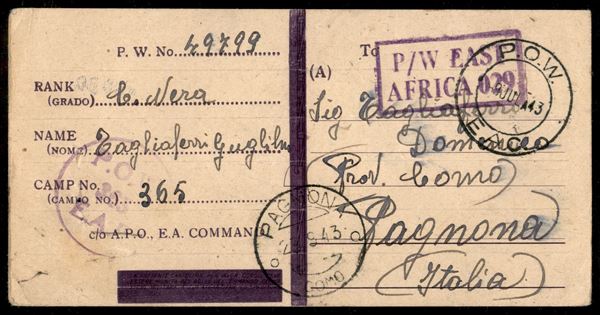 P. W. No. 49799
RANK
(GRADO) C. Nera
NAME
(NOME) Tagliaferri Guglielmo
CAMP No.
(CAMPO NO.) 365
c/o A.P.O., E.A. COMMAND
To
(A)
Sig Tagliaferri
Domenico
Prov. Como
Pagnona
(Italia)
P/W EAST
AFRICA 029
P.O.W.
43
E.A.C.
P.O.W.
365
E.A.
PAGNONA
9.43
COMO